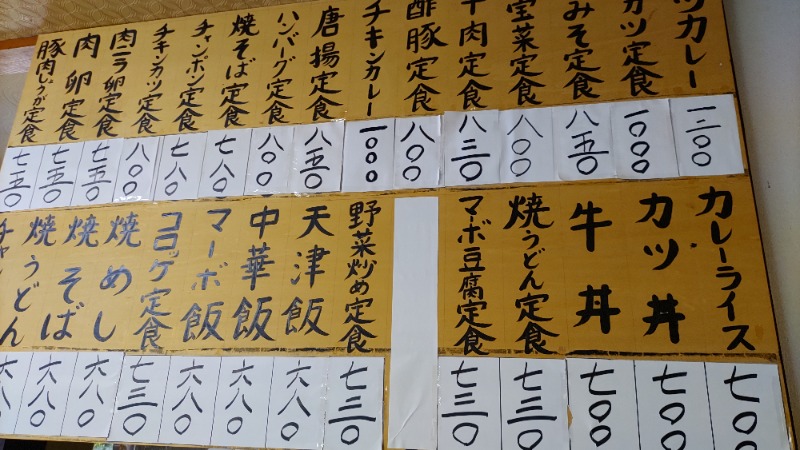 ツカレー
一二〇〇
カツ定食
一〇〇〇
みそ定食
八五〇
宝菜定食
八〇〇
牛肉定食
八三〇
酢豚定食
八〇〇
チキンカレー
一〇〇〇
唐揚定食
八五〇
ハンバーグ定食
八〇〇
焼そば定食
七八〇
チャンポン定食
七八〇
チキンカツ定食
八〇〇
肉ニラ卵定食
七五〇
肉卵定食
七五〇
豚肉しょうが定食
七五〇
カレーライス
七〇〇
カツ丼
七〇〇
牛丼
七〇〇
焼うどん定食
七三〇
マーボ豆腐定食
七三〇
野菜炒め定食
七三〇
天津飯
六八〇
中華飯
六八〇
マーボ飯
六八〇
コロッケ定食
七三〇
焼めし
六八〇
焼そば
六八〇
焼うどん
六八〇